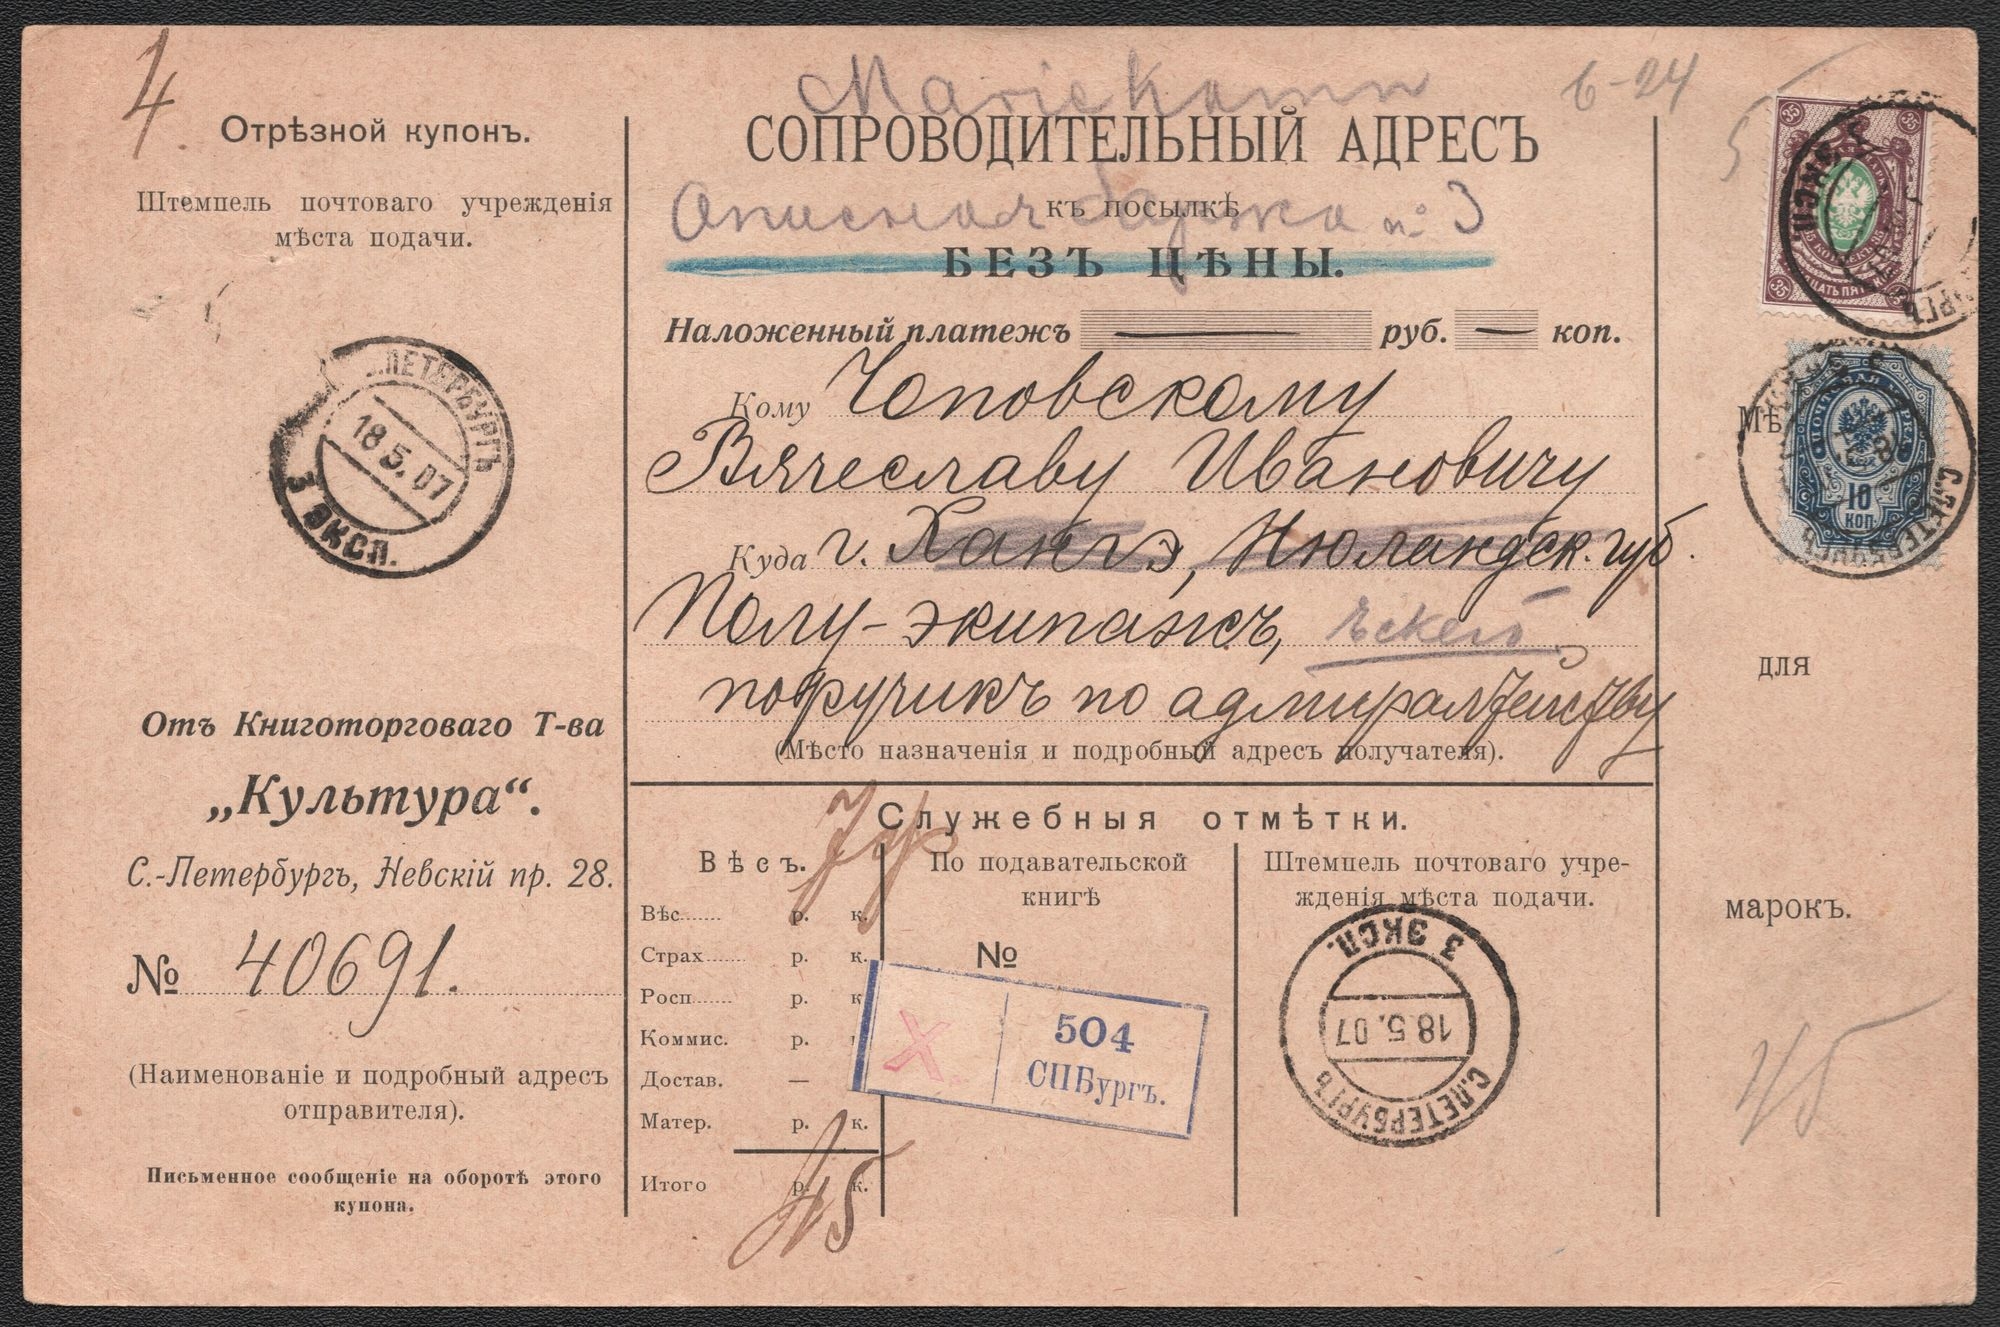 4
Отрѣзной купонъ.
Штемпель почтоваго учрежденія
мѣста подачи.
ПЕТЕРБУРГЪ
18.5.07
3 ЭКСП.
Отъ Книготорговаго Т-ва
„Культура“.
С.-Петербургъ, Невскій пр. 28.
№ 40691.
(Наименованіе и подробный адресъ
отправителя).
Письменное сообщеніе на оборотѣ этого
купона.
6-24
СОПРОВОДИТЕЛЬНЫЙ АДРЕСЪ
къ посылкѣ
Описная баржа № 3
БЕЗЪ ЦѢНЫ.
Наложенный платежъ — руб. — коп.
Кому Чоповскому
Вячеславу Ивановичу
Куда г. Хангэ, Нюландск. губ.
Полу-экипажъ,
поручикъ по адмиралтейству
(Мѣсто назначенія и подробный адресъ получателя).
Служебныя отмѣтки.
Вѣсъ.
Вѣс р. к.
Страх р. к.
Росп р. к
Коммис. р.
Достав. —
Матер. р. к.
Итого р. к.
45
По подавательской
книгѣ
№
X.
504
СПБургъ.
Штемпель почтоваго учре-
жденія мѣста подачи.
3 ЭКСП.
18.5.07
С.ПЕТЕРБУРГЪ
5
35 35
35 35
ЭКСП.
ПОЧТОВАЯ МАРКА
10
КОП.
С.ПЕТЕРБУРГЪ
Мѣ
для
марокъ.
45